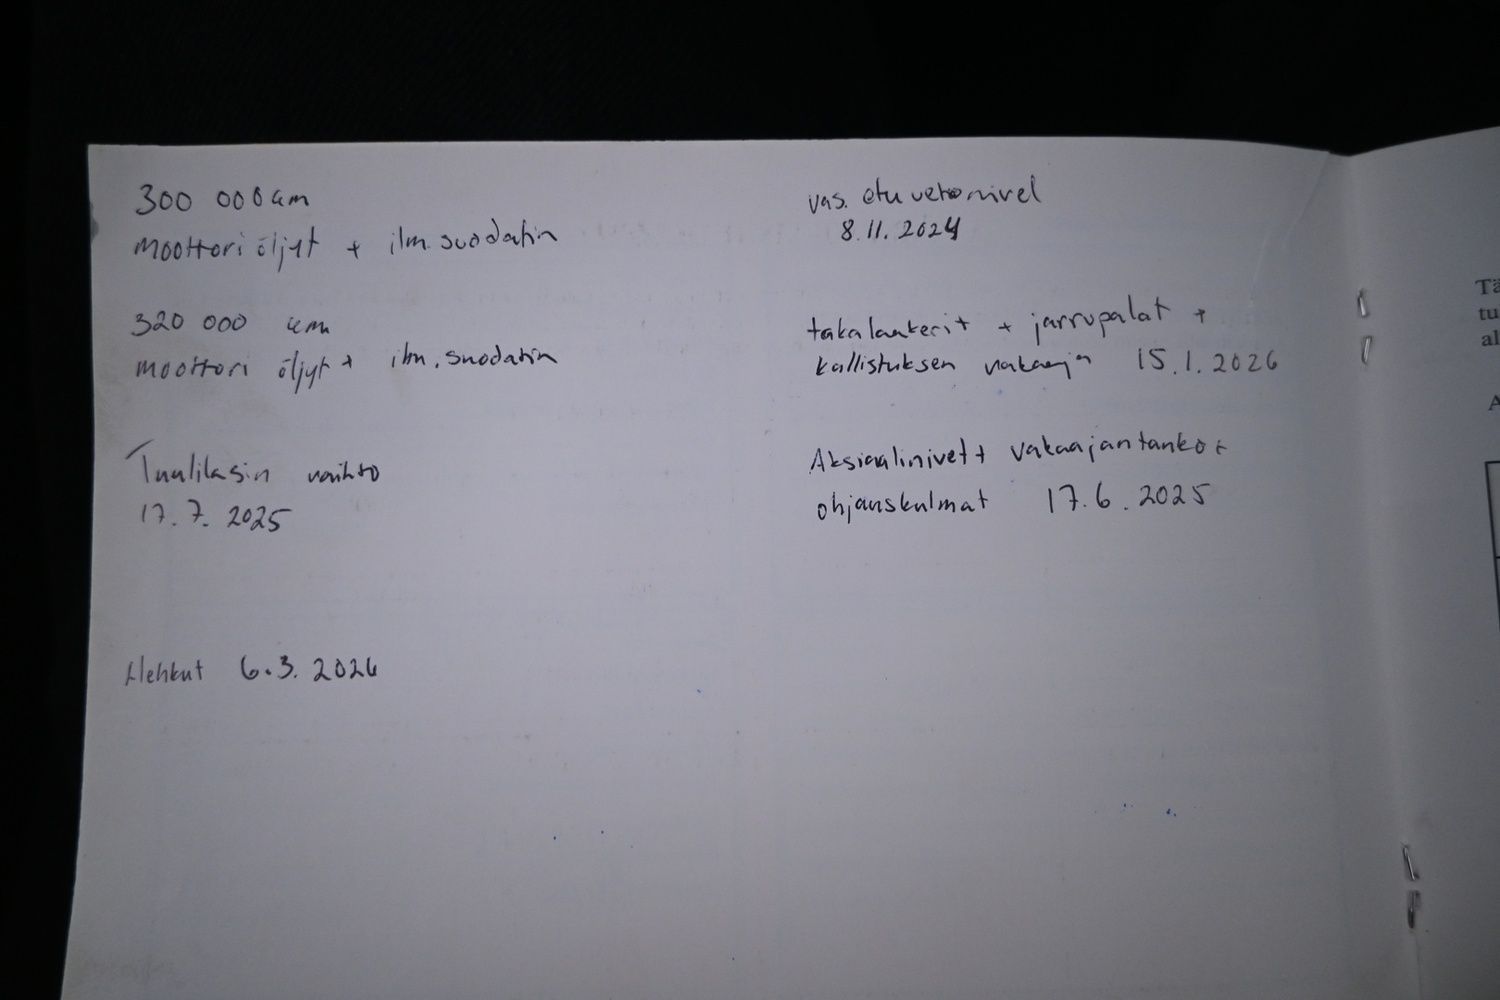 300 000 km
moottori öljyt + ilm. suodatin
320 000 km
moottori öljyt + ilm. suodatin
Tuulilasin vaihto
17. 7. 2025
Hehkut 6.3. 2026
vas. etu vetonivel
8.11. 2024
takalaakerit + jarrupalat +
kallistuksen vakaaja 15.1.2026
Aksiaalinivelt+ vakaajantanko+
ohjauskulmat 17.6.2025
Tä
tu
al
A